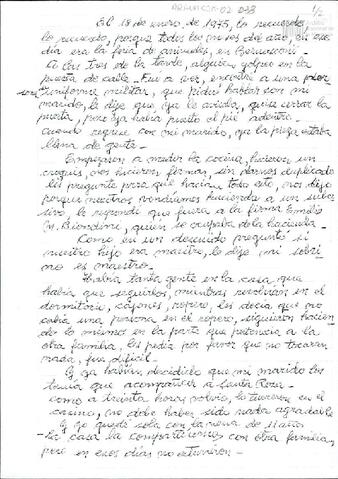 El 15 de enero de 1975, lo recuerdo
lo recuerdo, porque todos los meses del año, en ese
día era la feria de animales, en Bernasconi.
A las tres de la tarde, alguien golpeó en la
puerta de calle. Fui a ver, encontré a una
uniforme militar, que pidió hablar con mi
marido, le dije que ya le avisaba, quise cerrar la
puerta, pero ya había puesto el pie adentro.
Cuando regresé con mi marido, ya la pieza estaba
llena de gente.
Empezaron a medir la cocina, hicieron un
croquis, nos hicieron firmar, sin darnos duplicado
Les pregunté para que hacían todo esto, nos dijo
porque nuestros vendíamos hacienda a un
le respondí que fuera a la firma Emilio
N. Biondini, quien se ocupaba de la hacienda.
Como en un descuido preguntó si
nuestro hijo era maestro, le dije mi sobri
no es maestro.
Había tanta gente en la casa, que
había que seguirlos, mientras revolvían en el
dormitorio, cajones, ropero, les decía que no
cabía una persona en el ropero, siguieron hacien
do lo mismo en la parte que pertenecía a la
otra familia, les pedía por favor que no tocaran
nada, fue difícil.
Y ya habían decidido que mi marido los
tenía que acompañar a Santa Rosa.
Como a treinta horas volvió, lo tuvieron en el
camino, no debe haber sido nada agradable
Y yo quedé sola con la nena de 11 años.
- La casa la compartíamos con otra familia,
pero en esos días no estuvieron -